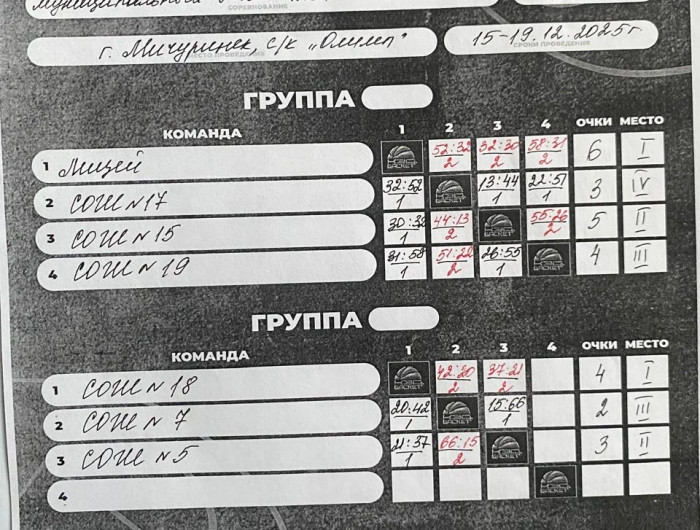 муниципального
СОРЕВНОВАНИЕ
г. Мичуринск, с/к „Олимп"
МЕСТО ПРОВЕДЕНИЯ
15-19.12.2025г
СРОКИ ПРОВЕДЕНИЯ
ГРУППА
КОМАНДА 1 2 3 4 ОЧКИ МЕСТО
1 Лицей 52:32 2 52:30 2 58:31 2 6 I
2 СОШ №17 32:52 1 13:44 1 22:51 1 3 IV
3 СОШ №15 30:32 1 44:13 2 55:26 2 5 II
4 СОШ №19 31:58 1 51:22 2 26:55 1 4 III
ГРУППА
КОМАНДА 1 2 3 4 ОЧКИ МЕСТО
1 СОШ №18 42:20 2 37:21 2 4 I
2 СОШ №7 20:42 1 15:66 1 2 III
3 СОШ №5 21:37 1 66:15 2 3 II
4